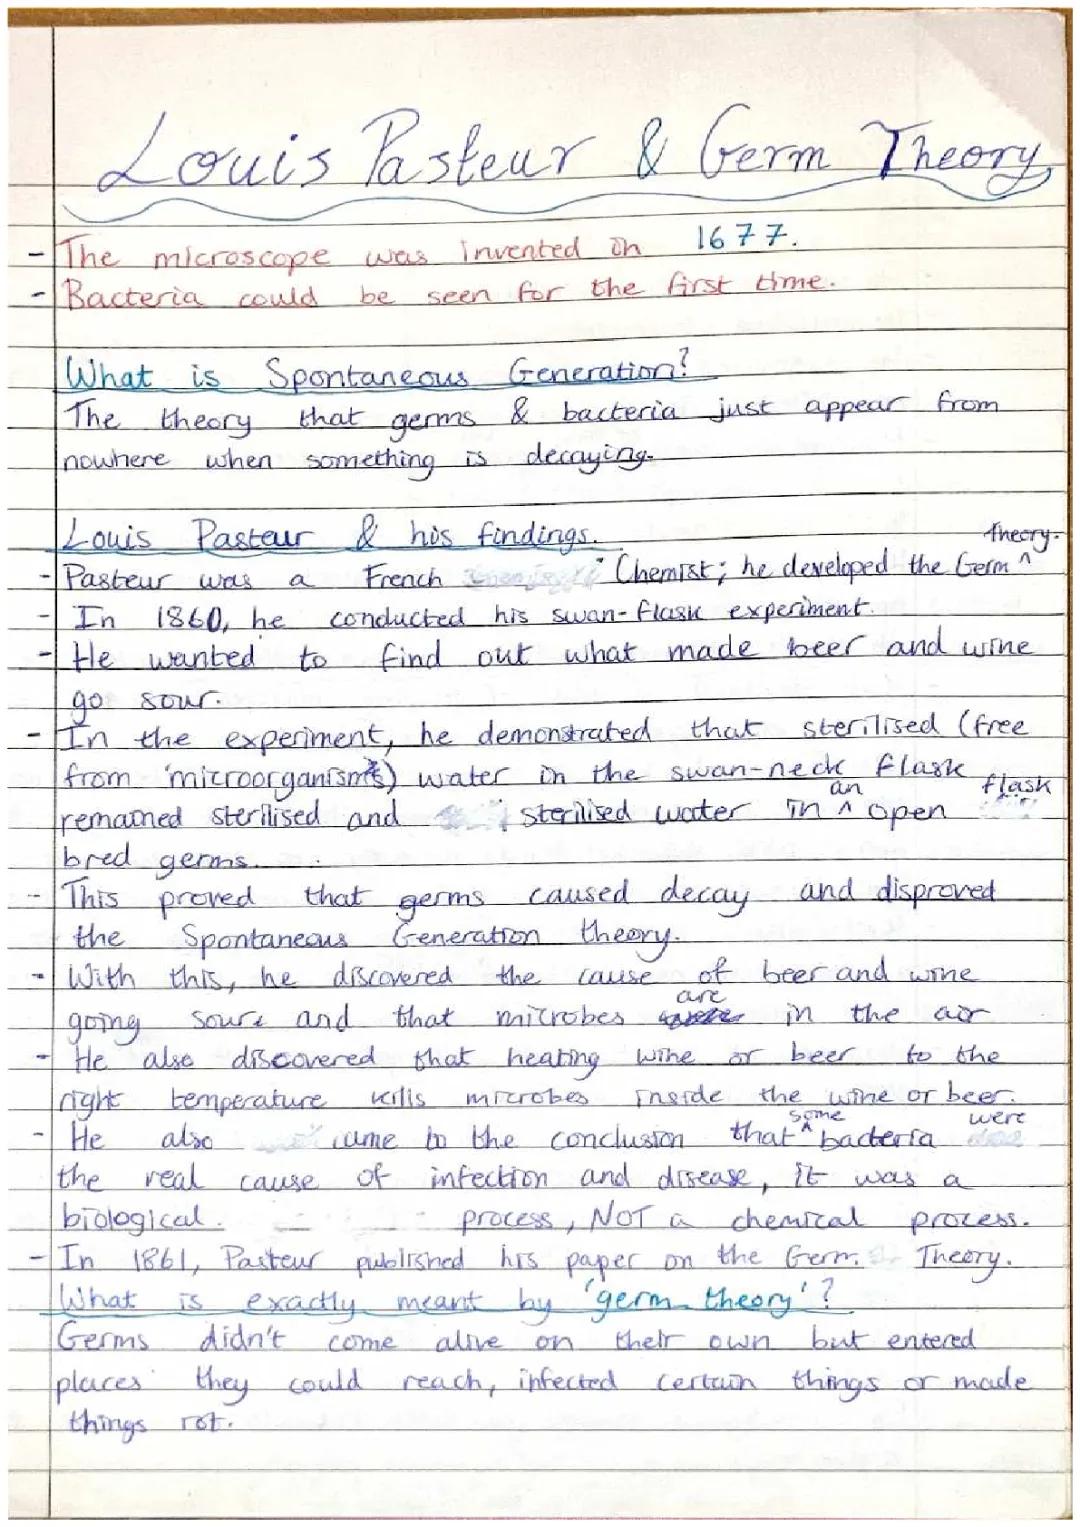 Louis Pasteur & Germ Theory
- The microscope was invented in 1677.
- Bacteria could be seen for the first time.
What is Spontaneous Generation?
The theory that germs & bacteria just appear from
nowhere when something is decaying.
Louis Pasteur & his findings.
- Pasteur was a French Chemist; he developed the Germ ^ theory.
- In 1860, he conducted his swan-flask experiment.
- He wanted to find out what made beer and wine
go sour.
- In the experiment, he demonstrated that sterilised (free
from microorganisms) water in the swan-neck flask
remained sterilised and sterilised water in ^ an open flask
bred germs.
- This proved that germs caused decay and disproved
the Spontaneous Generation theory.
- With this, he discovered the cause of beer and wine
going sour and that microbes are in the air
- He also discovered that heating wine or beer to the
right temperature kills microbes inside the wine or beer.
- He also came to the conclusion that ^ some bacteria were
the real cause of infection and disease, it was a
biological process, NOT a chemical process.
- In 1861, Pasteur published his paper on the Germ Theory.
What is exactly meant by 'germ theory'?
Germs didn't come alive on their own but entered
places they could reach, infected certain things or made
things rot.